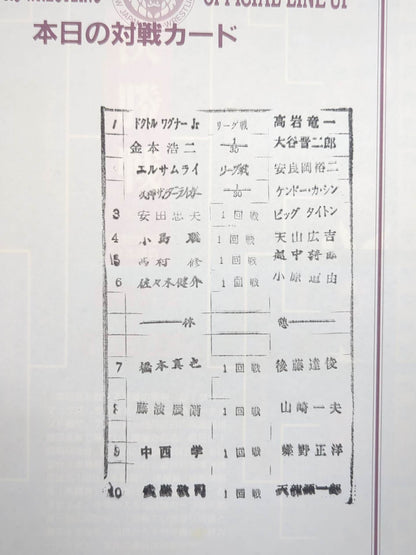 OFFICIAL LINE UP
本日の対戦カード
1 ドクトル ワグナー Jr リーグ戦 高岩竜一
金本浩二 1/30 大谷晋二郎
エルサムライ リーグ戦 安良岡裕二
獣神サンダーライガー 1/30 ケンドー・カ・シン
3 安田忠夫 1回戦 ビッグ タイトン
4 小島聡 1回戦 天山広吉
5 西村修 1回戦 越中詩郎
6 佐々木健介 1回戦 小原道由
休 憩
7 橋本真也 1回戦 後藤達俊
8 藤波辰爾 1回戦 山崎一夫
9 中西学 1回戦 蝶野正洋
10 武藤敬司 1回戦 天龍源一郎